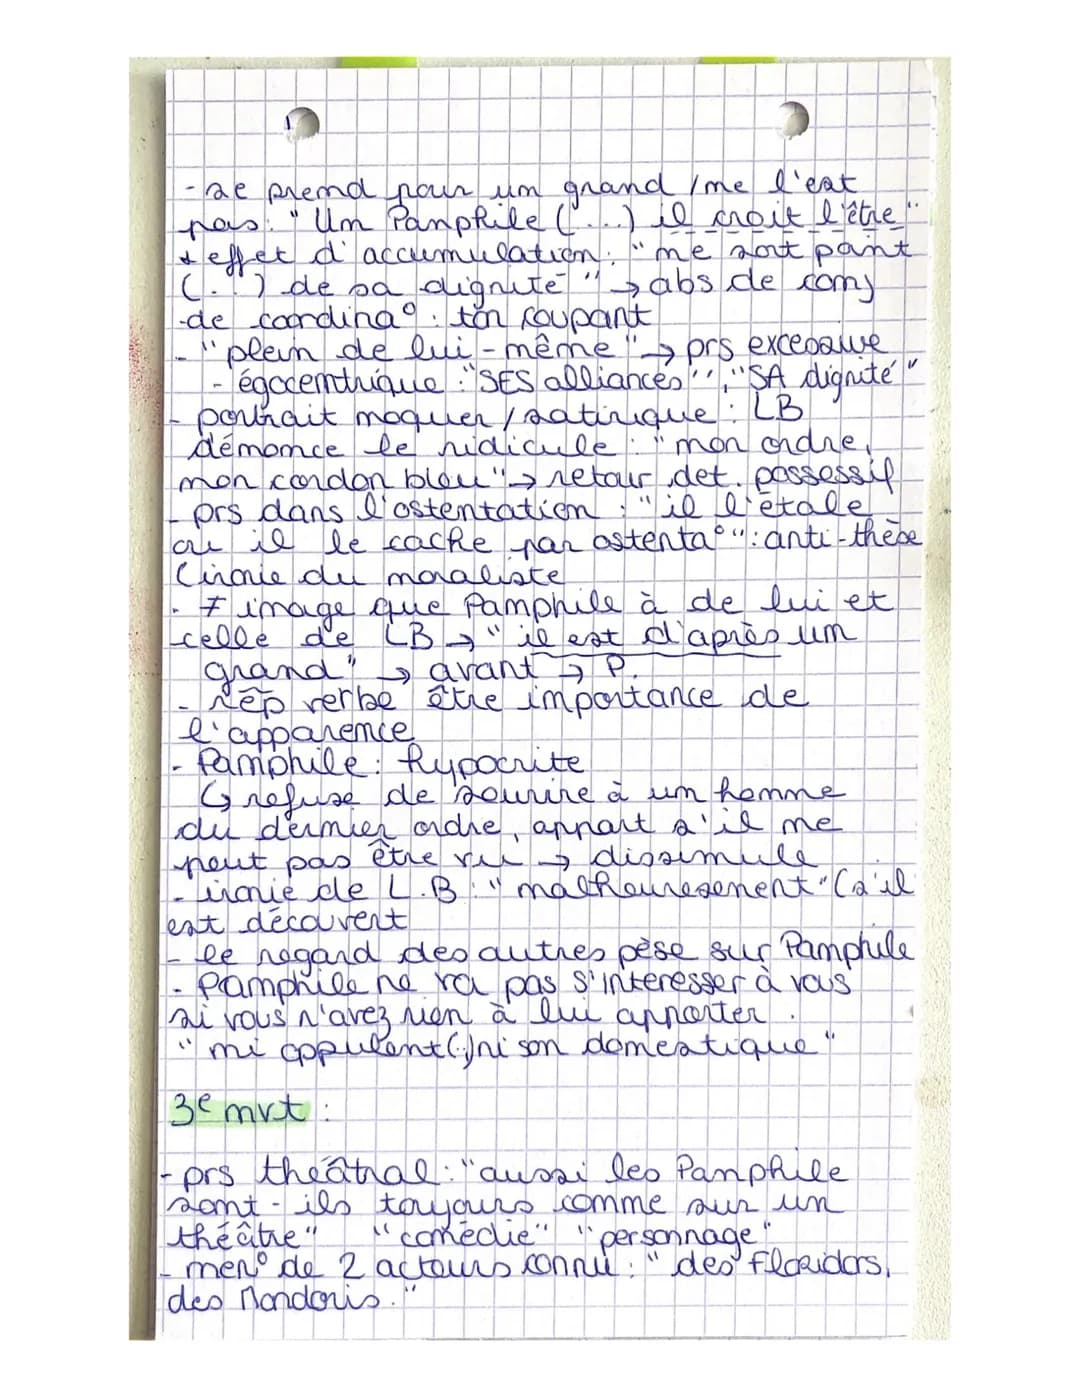 - se prend pour un grand / ne l'est
pas : "Un Pamphile (...) il croit l'être".
+ effet d'accumulation : "ne sort point
(...) de sa dignité" → abs de conj
de coordina° : ton coupant
- "plein de lui-même" → prs excessive
- égocentrique : "SES alliances", "SA dignité"
- portrait moquer / satirique : LB
démonce le ridicule : "mon ordre,
mon cordon bleu" → retour det. possessif
- prs dans l'ostentation : "il l'étale
ou il le cache par ostenta°" : anti-thèse
(ironie du moraliste
- ≠ image que Pamphile à de lui et
celle de LB → "il est d'après un
grand" → avant → P.
- rép verbe être importance de
l'apparence
- Pamphile : hypocrite
↳ refuse de sourire à un homme
du dernier ordre, appart s'il ne
peut pas être vu → dissimule
- ironie de L.B : "malheuresement" (s'il
est découvert
- le regard des autres pèse sur Pamphile
- Pamphile ne va pas s'interesser à vous
si vous n'avez rien à lui apporter.
"ni oppulent (.) ni son domestique"
3e mvt :
- prs théâtral : "aussi les Pamphile
sont-ils toujours comme sur un
théâtre" "comédie" "personnage"
- men° de 2 acteurs connu : "des Floridors,
des Mondoris."